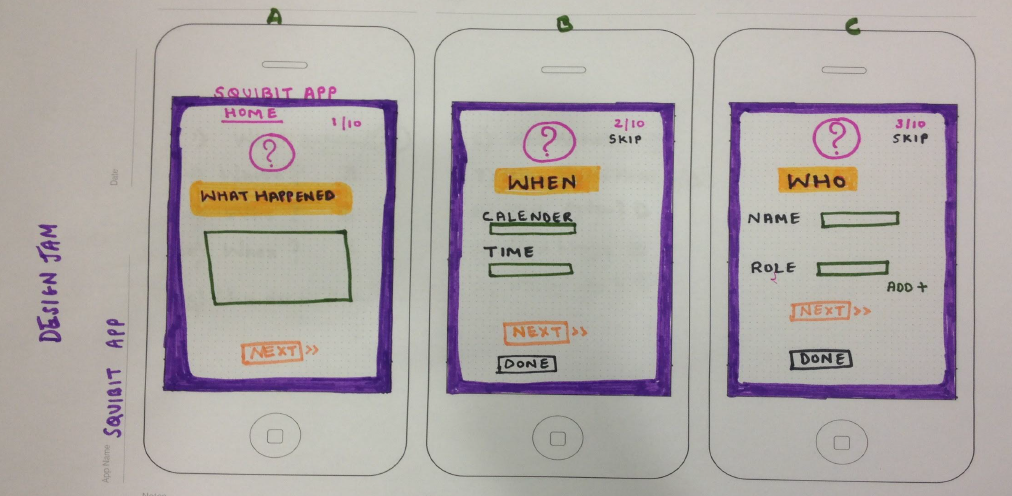 DESIGN JAM
App Name SQUIBIT APP
Date
A
SQUIBIT APP
HOME
1/10
?
WHAT HAPPENED
NEXT >>
B
2/10
SKIP
?
WHEN
CALENDER
TIME
NEXT >>
DONE
C
3/10
SKIP
?
WHO
NAME
ROLE
ADD +
NEXT >>
DONE